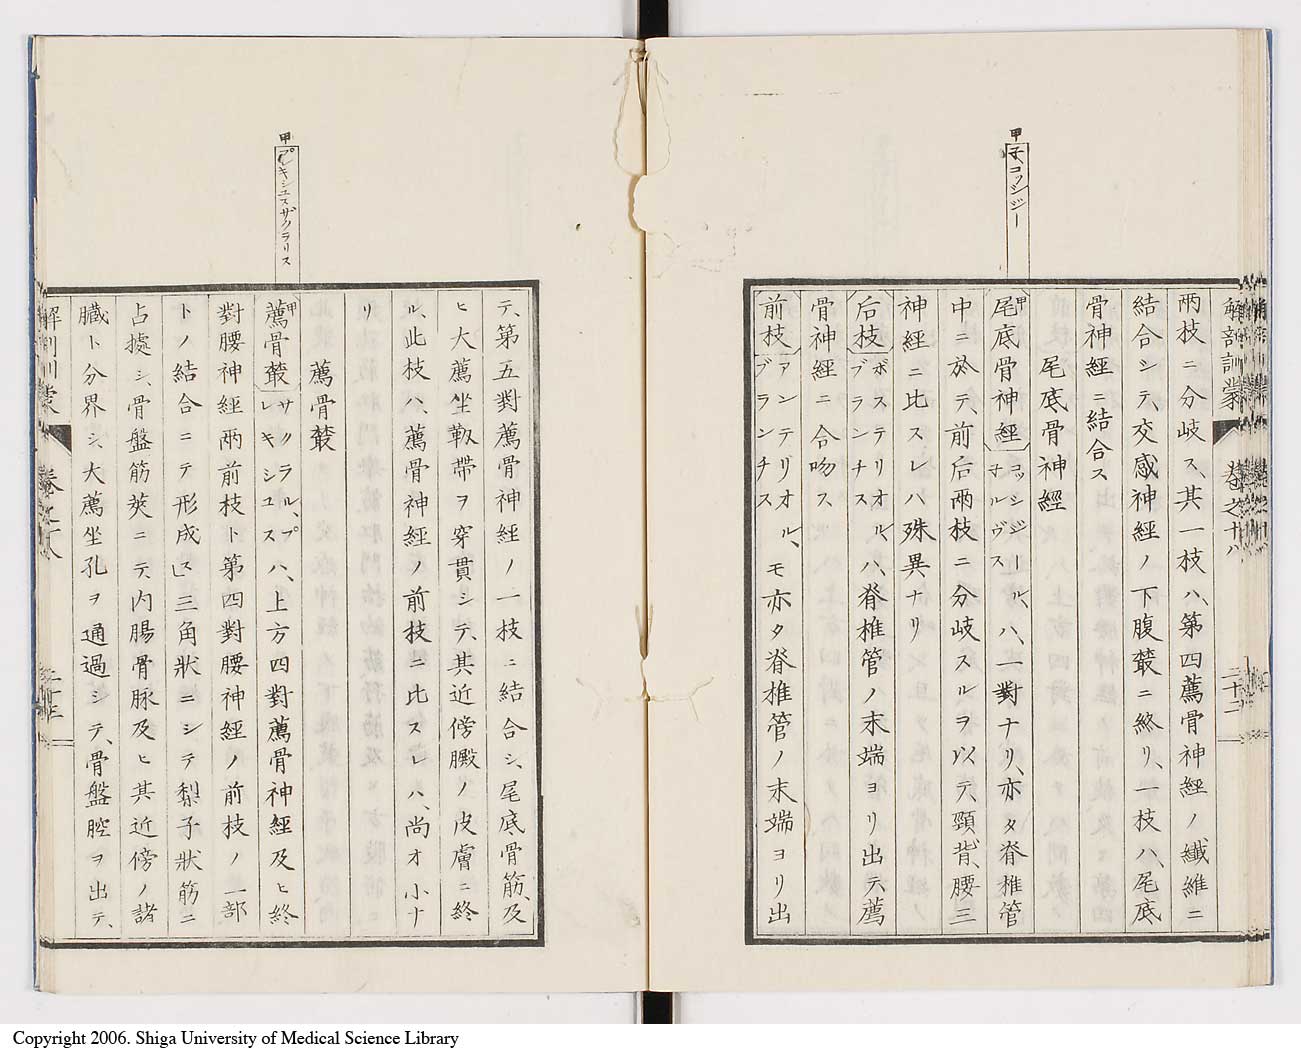 解剖訓蒙 卷之十八 二十二
兩枝ニ分岐ス、其一枝ハ、第四薦骨神經ノ纖維ニ
結合シテ、交感神經ノ下腹叢ニ終リ、一枝ハ、尾底
骨神經ニ結合ス
尾底骨神經
甲 子、コッシジー
甲尾底骨神經 コッシジール、ナルヴス ハ、一對ナリ、亦タ脊椎管
中ニ於テ、前后兩枝ニ分岐スルヲ以テ、頸、背、腰三
神經ニ比スレハ殊異ナリ
后枝 ポステリオル、ブランチス ハ、脊椎管ノ末端ヨリ出テ薦
骨神經ニ合吻ス
前枝 アンテリオル、ブランチス モ亦タ脊椎管ノ末端ヨリ出
テ、第五對薦骨神經ノ一枝ニ結合シ、尾底骨筋、及
ヒ大薦坐靱帶ヲ穿貫シテ、其近傍臋ノ皮膚ニ終
ル、此枝ハ、薦骨神經ノ前枝ニ比スレハ、尚オ小ナ
リ
薦骨叢
甲 プレキシユスサクラリス
甲薦骨叢 サクラル、プレキシユス ハ、上方四對薦骨神經及ヒ終
對腰神經兩前枝ト第四對腰神經ノ前枝ノ一部
トノ結合ニテ形成ス」三角狀ニシテ梨子狀筋ニ
占據シ、骨盤筋莢ニテ、內腸骨脉及ヒ其近傍ノ諸
臓ト分界シ、大薦坐孔ヲ通過シテ、骨盤腔ヲ出テ、
解剖訓蒙 卷之十八
Copyright 2006. Shiga University of Medical Science Library